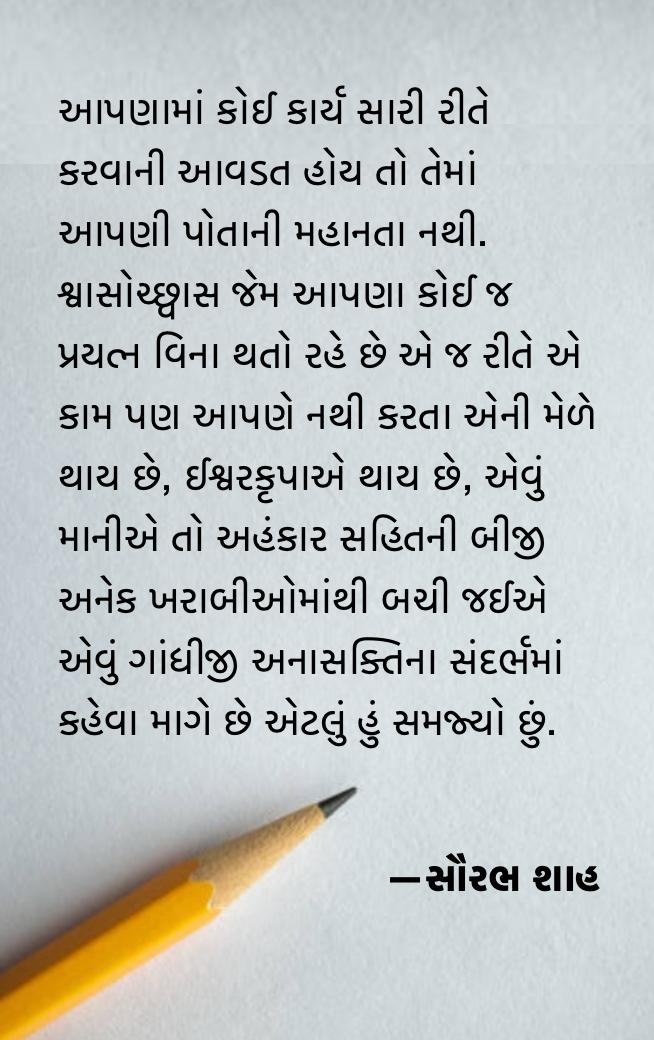 આપણામાં કોઈ કાર્ય સારી રીતે
કરવાની આવડત હોય તો તેમાં
આપણી પોતાની મહાનતા નથી.
શ્વાસોચ્છ્વાસ જેમ આપણા કોઈ જ
પ્રયત્ન વિના થતો રહે છે એ જ રીતે એ
કામ પણ આપણે નથી કરતા એની મેળે
થાય છે, ઈશ્વરકૃપાએ થાય છે, એવું
માનીએ તો અહંકાર સહિતની બીજી
અનેક ખરાબીઓમાંથી બચી જઈએ
એવું ગાંધીજી અનાસક્તિના સંદર્ભમાં
કહેવા માગે છે એટલું હું સમજ્યો છું.
—સૌરભ શાહ